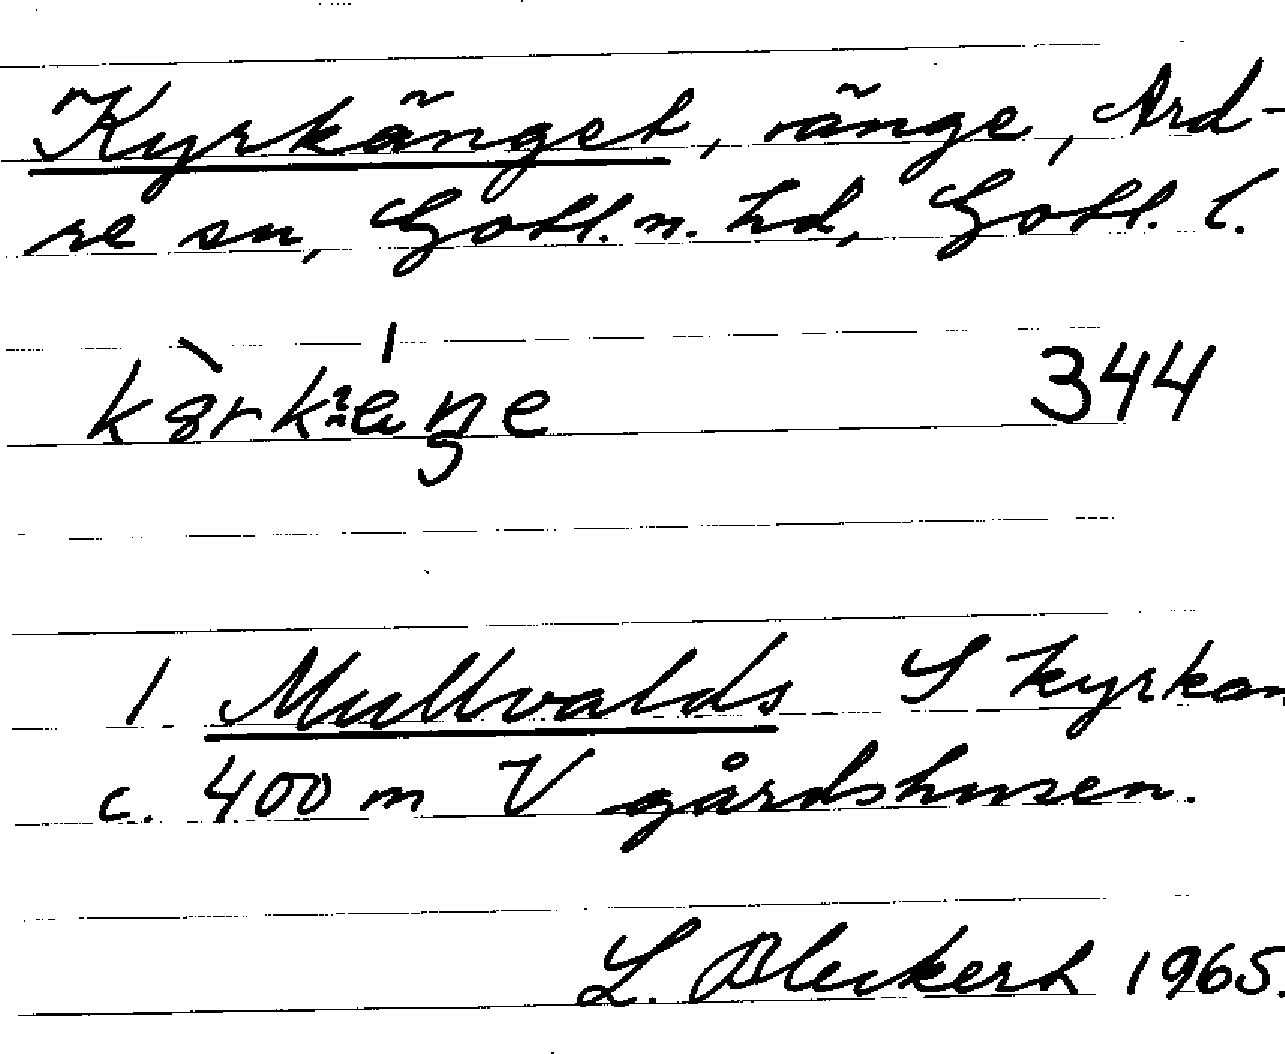 Kyrkänget, vänge, Ard-
re sn, Gotl. n. hd, Gotl. l.
344
1 Mullvalds S kyrkan
c. 400 m V gårdshusen.
L. Bleckert 1965.